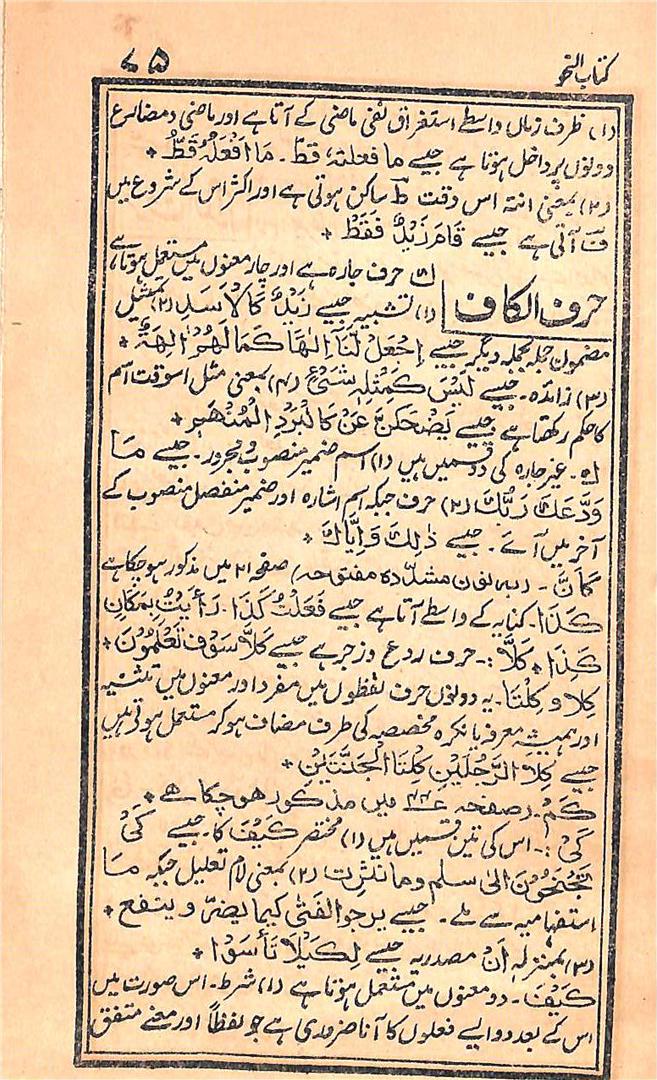 کتاب النحو
۷۵
(۱) ظرف زماں واسطے استغراق نفی ماضی کے آتا ہے اور ماضی و مضارع
دونوں پر داخل ہوتا ہے جیسے ما فعلتہ قط۔ مَا اَفْعَلُہٗ قَطُّ *
(۲) بمعنی انتہ اس وقت ط ساکن ہوتی ہے اور اکثر اس کے شروع میں
ف آتی ہے جیسے قَامَ زَیْدٌ فَقَطْ *
حرف الکاف
ک حرف جارہ ہے اور چار معنوں میں مستعمل ہوتا ہے
(۱) تشبیہ جیسے زَیْدٌ کَالْاَسَدِ (۲) تمثیل
مضمون جملہ بجملہ دیگر جیسے اِجْعَلْ لَّنَا اِلٰھًا کَمَا لَھُمْ اٰلِھَۃٌ *
(۳) زائدہ۔ جیسے لَیْسَ کَمِثْلِہٖ شَیْءٌ (۴) بمعنی مثل اسوقت اسم
کا حکم رکھتا ہے جیسے یَضْحَکْنَ عَنْ کَالْبَرَدِ الْمُنْھَمِّ *
ک۔ غیر جارہ کی دو قسمیں ہیں (۱) اسم ضمیر منصوب و مجرور۔ جیسے مَا
وَدَّعَکَ رَبُّکَ (۲) حرف جبکہ اسم اشارہ اور ضمیر منفصل منصوب کے
آخر میں آئے۔ جیسے ذٰلِکَ وَاِیَّاکَ *
کَاَنَّ۔ (بہ نون مشددہ مفتوحہ) صفحہ ۲۱ میں مذکور ہو چکا ہے
کَذَا۔ کنایہ کے واسطے آتا ہے جیسے فَعَلْتُ کَذَا۔ رَأَیْتُ بِمَکَانِ
کَذَا * کَلَّا :۔ حرف ردع و زجر ہے جیسے کَلَّا سَوْفَ تَعْلَمُوْنَ *
کِلا و کِلْتَا۔ یہ دونوں حرف لفظوں میں مفرد اور معنوں میں تثنیہ
اور ہمیشہ معرفہ یا نکرہ مخصصہ کی طرف مضاف ہو کر مستعمل ہوتی ہیں
جیسے کِلَا الرَّجُلَیْنِ کِلْتَا الْجَنَّتَیْنِ *
کَمْ۔ (صفحہ میں مذکور ھو چکا ھے *
کَیْ :۔ اس کی تین قسمیں ہیں (۱) مختصر کَیْفَ کا۔ جیسے کَیْ
تَجْنَحُوْنَ الیٰ سلم وما نثرت (۲) بمعنی لام تعلیل جبکہ مَا
استفہامیہ سے ملے۔ جیسے یرجوالفتیٰ کیما یضرّ و ینفع *
(۳) بمنزلہ اَنْ مصدریہ جیسے لِکَیْلَا تَأْسَوْا *
کَیْفَ۔ دو معنوں میں مستعمل ہوتا ہے (۱) شرط۔ اس صورت میں
اس کے بعد دو ایسے فعلوں کا آنا ضروری ہے جو لفظاً اور معنے متفق